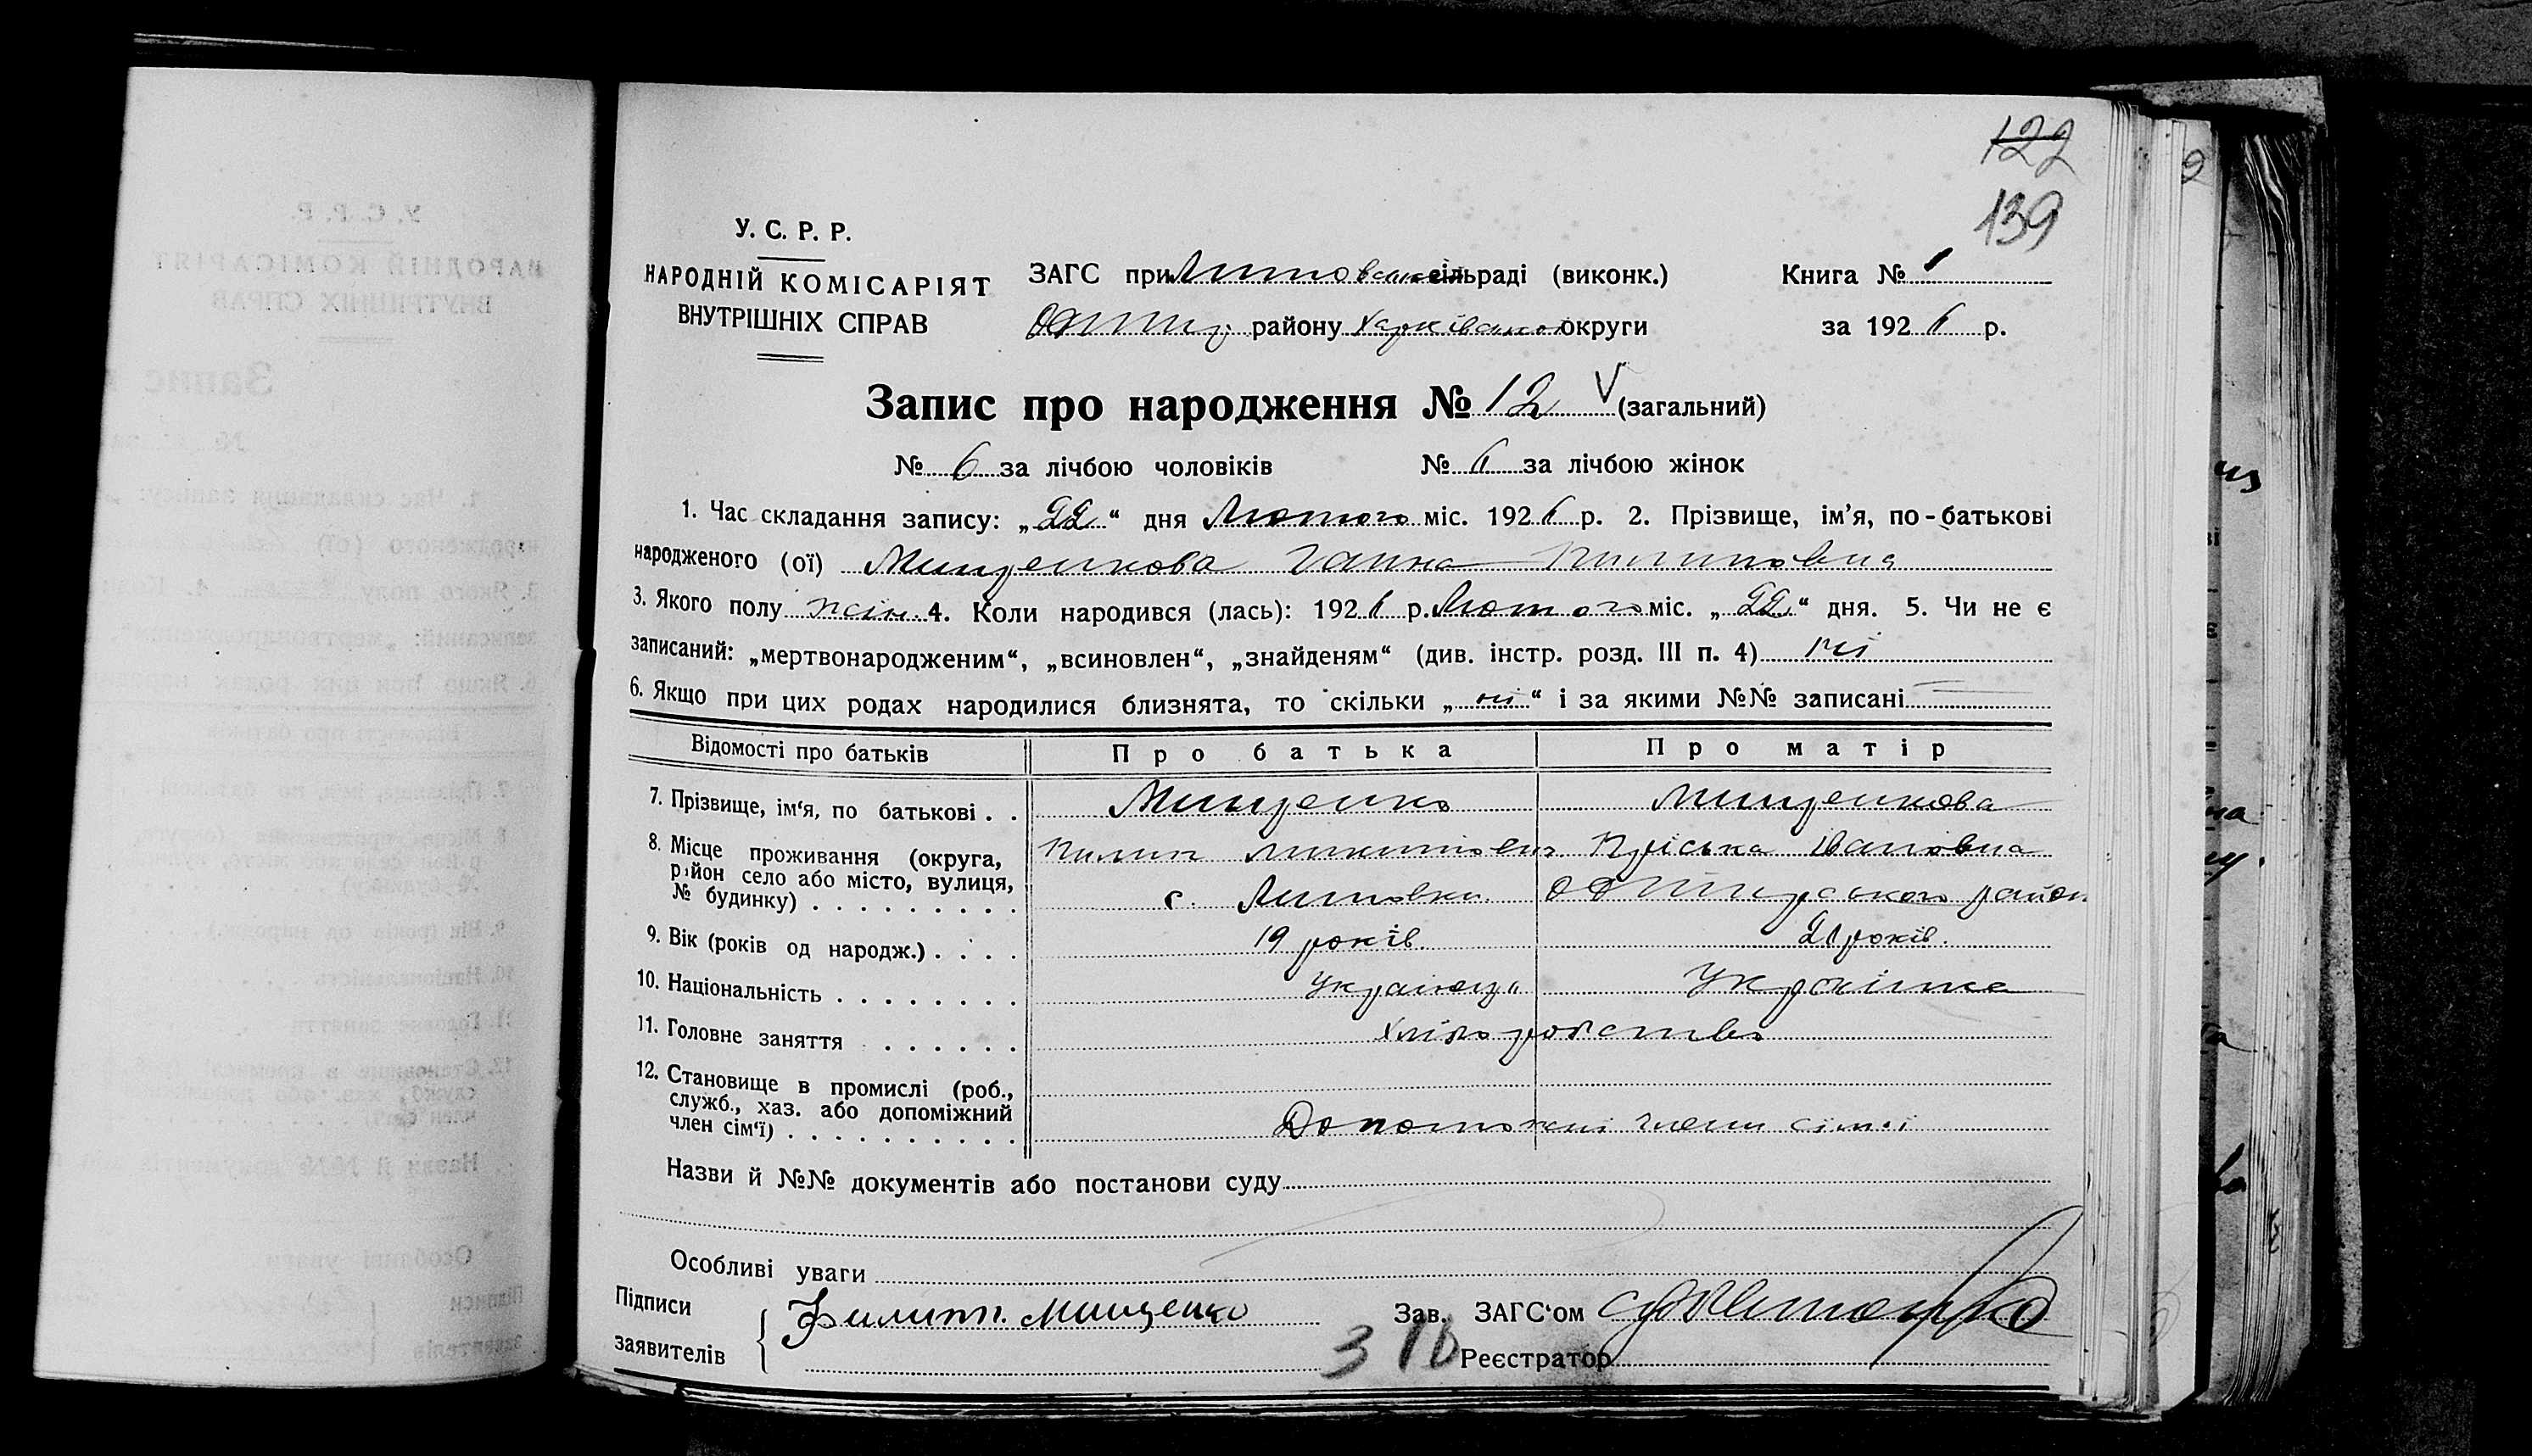 122
139
У. С. Р. Р.
НАРОДНІЙ КОМІСАРІЯТ
ВНУТРІШНІХ СПРАВ
ЗАГС при Липованській сільраді (виконк.)
району Харківської округи
Книга № 1
за 1926 р.
Запис про народження № 12 V (загальний)
№ 6 за лічбою чоловіків № 6 за лічбою жінок
1. Час складання запису: „22“ дня Лютого міс. 1926 р. 2. Прізвище, ім’я, по-батькові
народженого (ої) Мищенкова Ганна Пилиповна
3. Якого полу жін. 4. Коли народився (лась): 1926 р. Лютого міс. „22“ дня. 5. Чи не є
записаний: „мертвонародженим“, „всиновлен“, „знайденям“ (див. інстр. розд. III п. 4) ні
6. Якщо при цих родах народилися близнята, то скільки „ні“ і за якими №№ записані
Відомості про батьків Про батька Про матір
7. Прізвище, ім‘я, по батькові . . Мищенко Мищенкова
Пилип Микитович Пріська Івановна
8. Місце проживання (округа,
район село або місто, вулиця,
№ будинку) . . . . . . . . . с. района
9. Вік (років од народж.) . . . . 19 років 21 років.
10. Національність . . . . . . . . Українець Українка
11. Головне заняття . . . . . . Хліборобство
12. Становище в промислі (роб.,
служб., хаз. або допоміжний
член сім‘ї) . . . . . . . . . . Допоможні члени сімї
Назви й №№ документів або постанови суду
Особливі уваги
Підписи
заявителів
Филипп. Мищенко
Зав. ЗАГС‘ом
Реєстратор